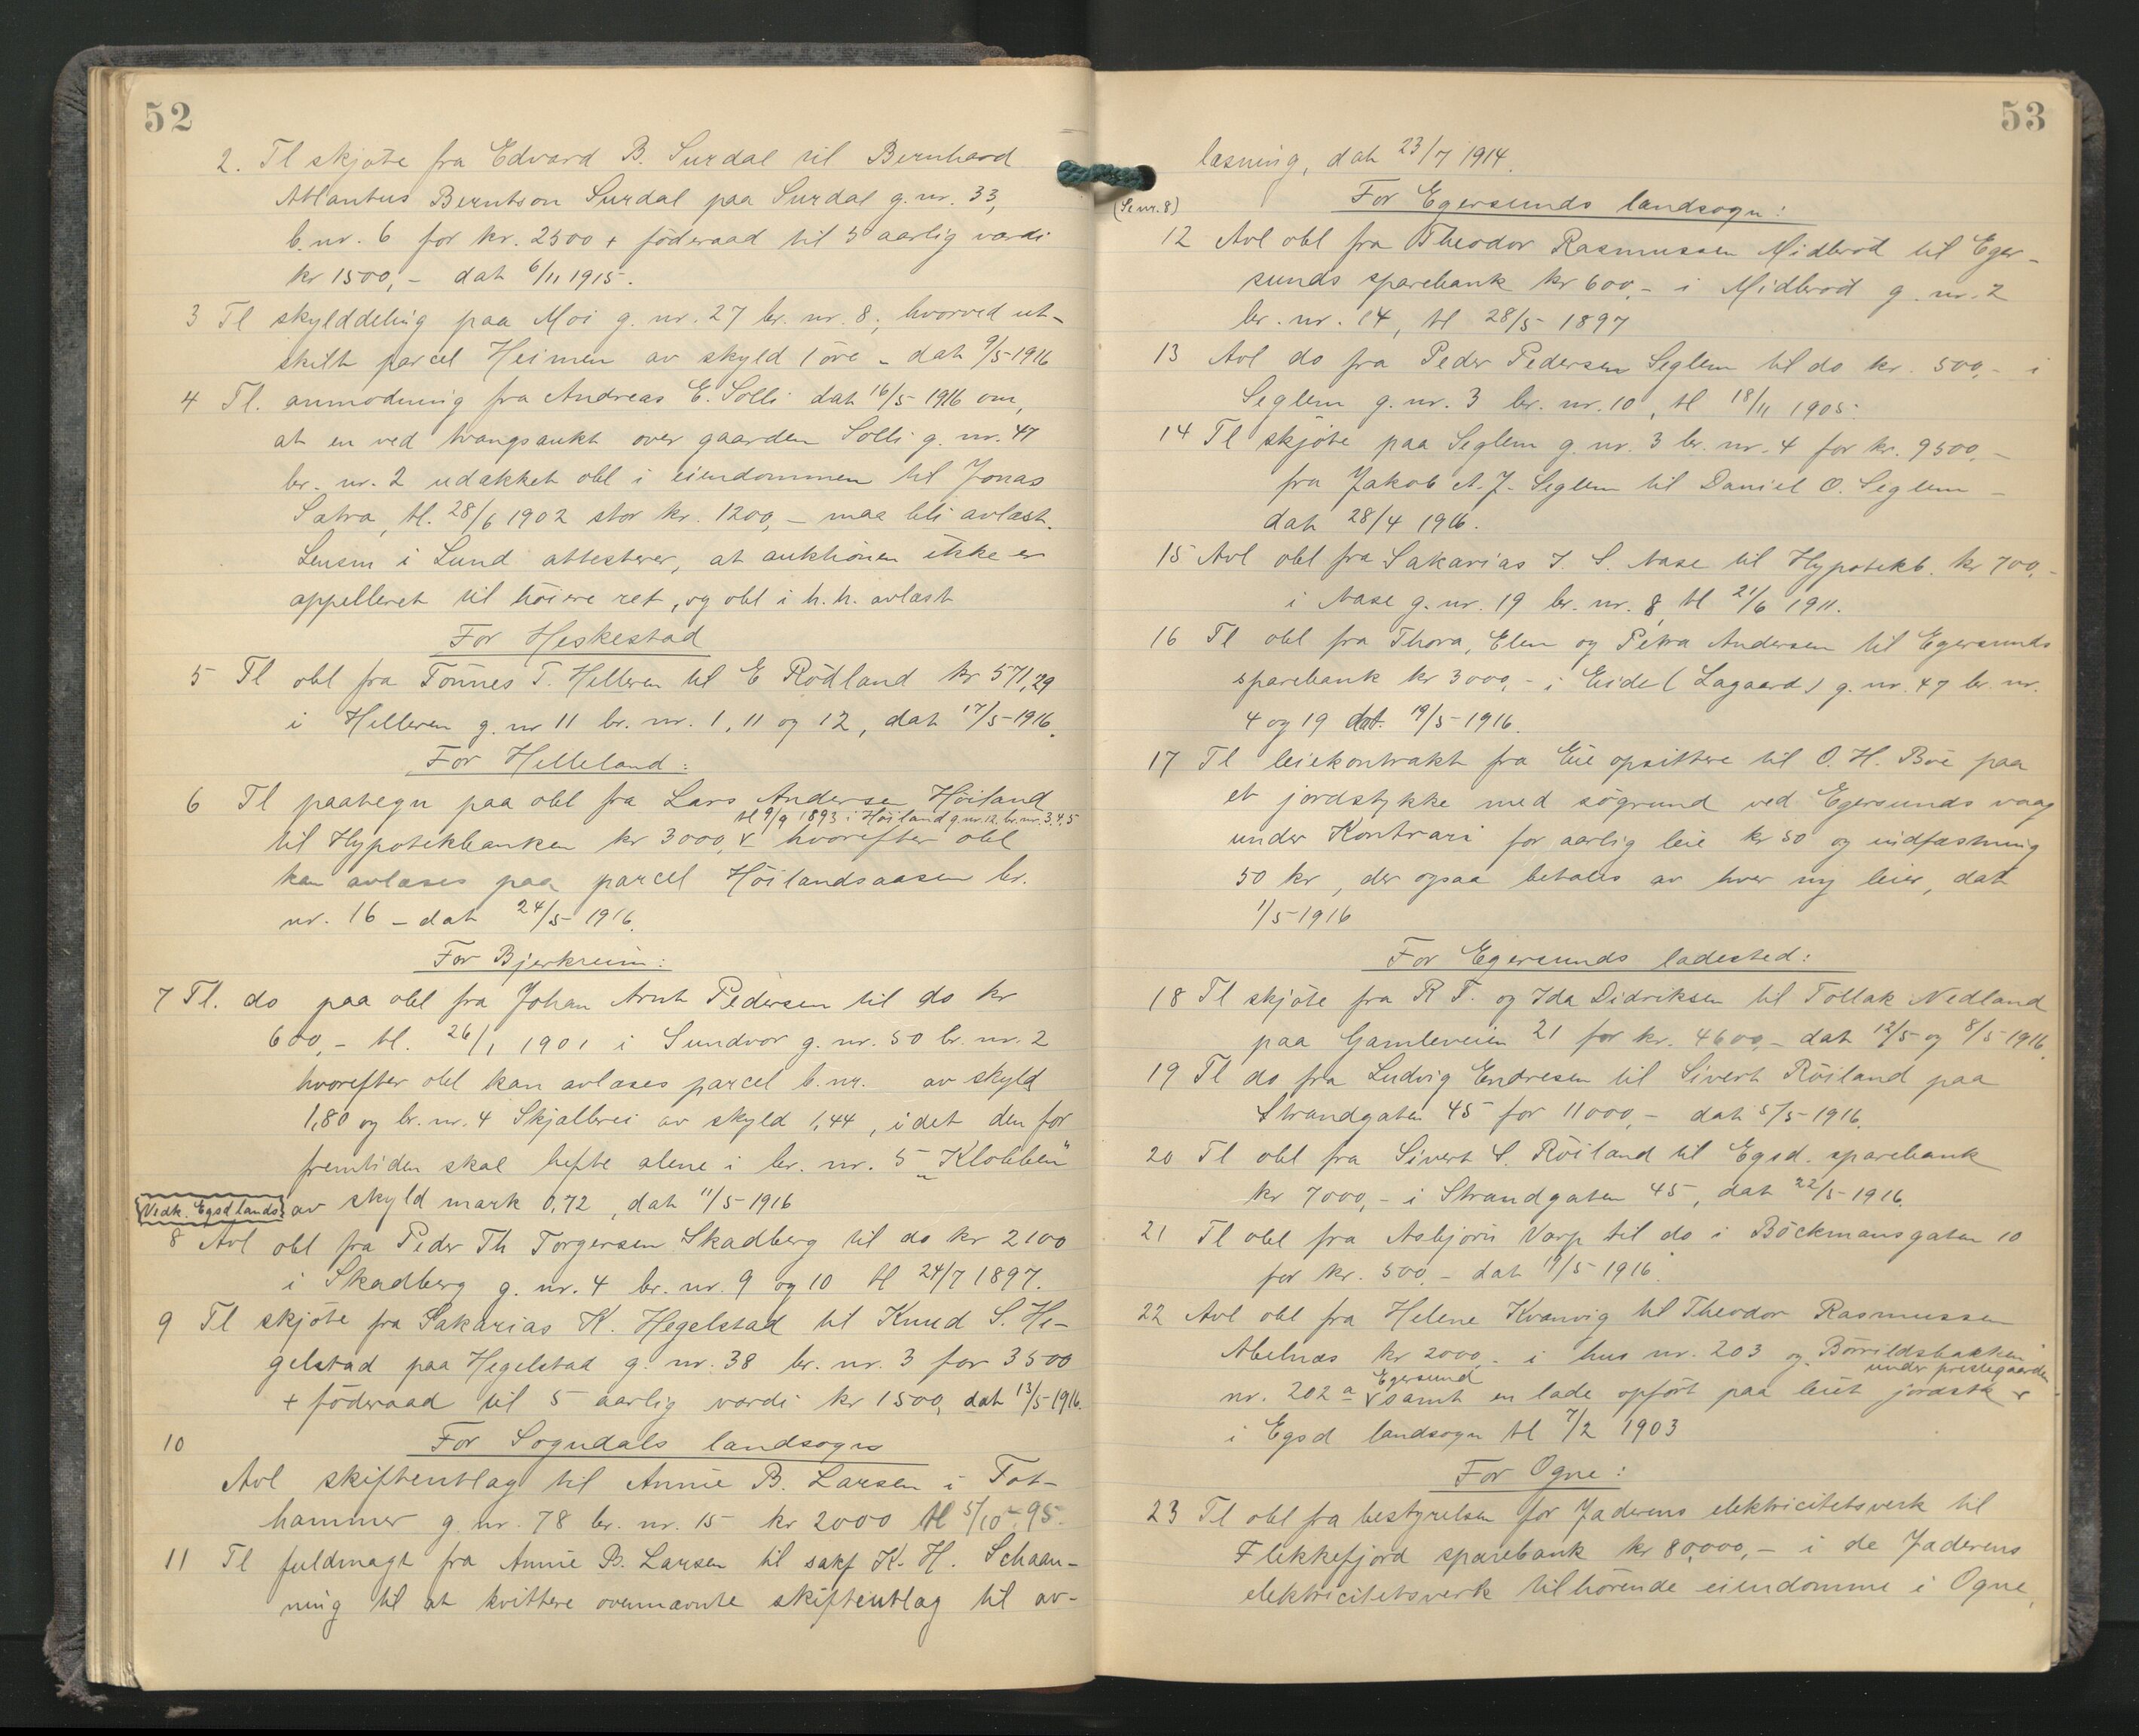 52
2. Tl skjöte fra Edvard B. Surdal til Bernhard
Atlantus Berntson Surdal paa Surdal g. nr. 33,
b. nr. 6 for kr. 2500 + föderaad til 5 aarlig værdi
kr 1500,- dat 6/11 1915.
3 Tl skylddeling paa Moi g. nr. 27 br. nr. 8, hvorved ut-
skilt parcel Heimen av skyld 1 öre - dat 9/5-1916
4 Tl. anmodning fra Andreas E. Solli dat 16/5-1916 om,
at en ved tvangsaukt over gaarden Solli g. nr. 47
br. nr. 2 udækket obl i eiendommen til Jonas
Satra, tl. 28/6 1902 stor kr. 1200,- maa bli avlæst.
Lensm i Lund attesterer, at auktionen ikke er
appelleret til höiere ret, og obl i h. h. avlæst
For Heskestad
5 Tl obl fra Tönnes T. Helleren til E Rödland kr 571,29
i Helleren g. nr 11 br. nr. 1, 11 og 12, dat 17/5-1916.
For Helleland:
6 Tl paategn paa obl fra Lars Andersen Höiland
tl 9/9 1893 i Höiland g. nr. 12 br. nr. 3, 4, 5
til Hypotekbanken kr 3000, v hvorefter obl
kan avlæses paa parcel Höilandsaasen br.
nr. 16 - dat 24/5-1916.
For Bjerkreim:
7 Tl. do paa obl fra Johan Arnt Pedersen til do kr
600,- tl. 26/1 1901 i Sundvor g. nr. 50 br. nr. 2
hvorefter obl kan avlæses parcel b. nr. av skyld
1,80 og br. nr. 4 Skjælbrei av skyld 1,44, idet den for
fremtiden skal hefte alene i br. nr. 5 „Klobben"
av skyld mark 0,72, dat 11/5-1916
Vedk. Egsd lands
8 Avl obl fra Peder Th Torgersen Skadberg til do kr 2100
i Skadberg g. nr. 4 br. nr. 9 og 10 tl 24/7 1897.
9 Tl skjöte fra Sakarias K. Hegelstad til Knud S. He-
gelstad paa Hegelstad g. nr. 38 br. nr. 3 for 3500
+ föderaad til 5 aarlig værdi kr 1500, dat 13/5-1916.
10 For Sogndals landsogn
Avl skifteutlag til Annie B. Larsen i Tot-
hammer g. nr. 78 br. nr. 15 kr 2000 tl 5/10-95.
11 Tl fuldmagt fra Annie B. Larsen til sakf K. H. Schaan-
ning til at kvittere ovennævnte skifteutlag til av-
53
læsning, dat 23/7 1914.
For Egersunds landsogn:
(Se nr. 8)
12 Avl obl fra Theodor Rasmussen Midbröd til Eger-
sunds sparebank kr 600,- i Midbröd g. nr. 2
br. nr. 14, tl 28/5 1897
13 Avl do fra Peder Pedersen Seglem til do kr. 500,- i
Seglem g. nr. 3 br. nr. 10, tl 18/11 1905.
14 Tl skjöte paa Seglem g. nr. 3 br. nr. 4 for kr. 9500,-
fra Jakob A. J. Seglem til Daniel O. Seglem -
dat 28/4 1916.
15 Avl obl fra Sakarias I. S. Aase til Hypotekb. kr 700,-
i Aase g. nr. 19 br. nr. 8, tl 21/6 1911.
16 Tl obl fra Thora, Elen og Petra Andersen til Egersunds
sparebank kr 3000,- i Eide (Lagaard) g. nr. 47 br. nr.
4 og 19 dat. 19/5-1916.
17 Tl leiekontrakt fra Eie opsittere til O. H. Böe paa
et jordstykke med sögrund ved Egersunds vaag
under Kontrari for aarlig leie kr 50 og indfæstning
50 kr, der ogsaa betales av hver ny leier, dat
1/5-1916
For Egersunds ladested:
18 Tl skjöte fra R. T. og Ida Didriksen til Tollak Nedland
paa Gamleveien 21 for kr. 4600,- dat 12/5 og 8/5-1916.
19 Tl do fra Ludvig Endresen til Sivert Röiland paa
Strandgaten 45 for 11000,- dat 5/5-1916.
20 Tl obl fra Sivert S. Röiland til Egsd. sparebank
kr 7000,- i Strandgaten 45, dat 22/5-1916.
21 Tl obl fra Asbjörn Varp til do i Böckmansgaten 10
for kr. 500,- dat 19/5-1916.
22 Avl obl fra Helene Kvanvig til Theodor Rasmussen
Abelnæs kr 2000,- i hus nr. 203 og Börildsbakken
Egersund under prestegaarden
nr. 202 a v samt en lade opfört paa leiet jordstk v
i Egsd landsogn tl 7/2 1903
For Ogne:
23 Tl obl fra bestyrelsen for Jæderens elektricitetsverk til
Flekkefjord sparebank kr 80,000,- i de Jæderens
elektricitetsverk tilhörende eiendomme i Ogne,